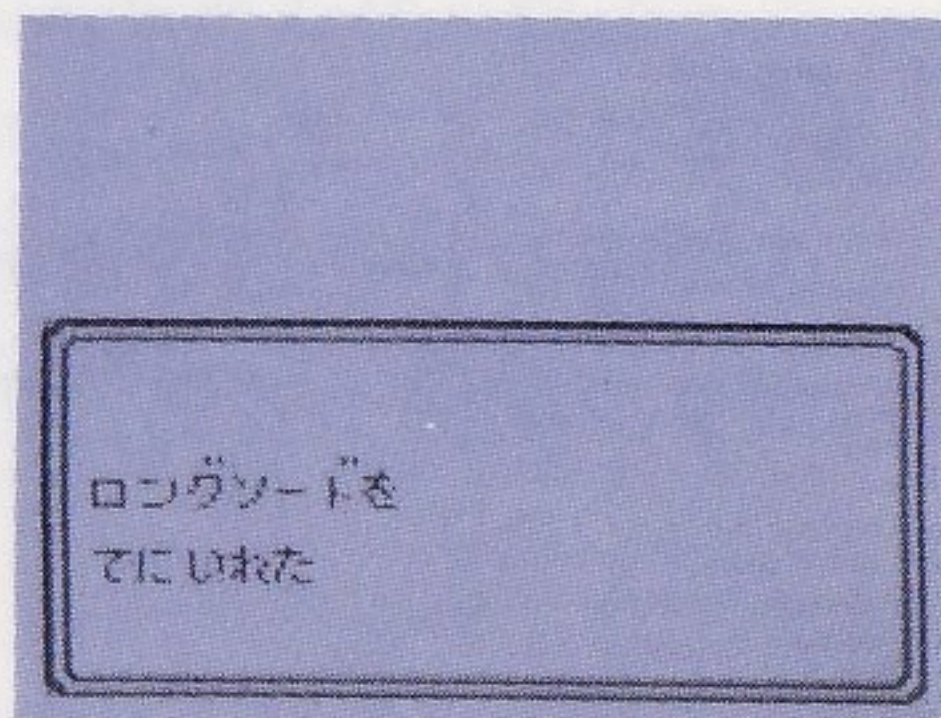 ロングソードを
てにいれた